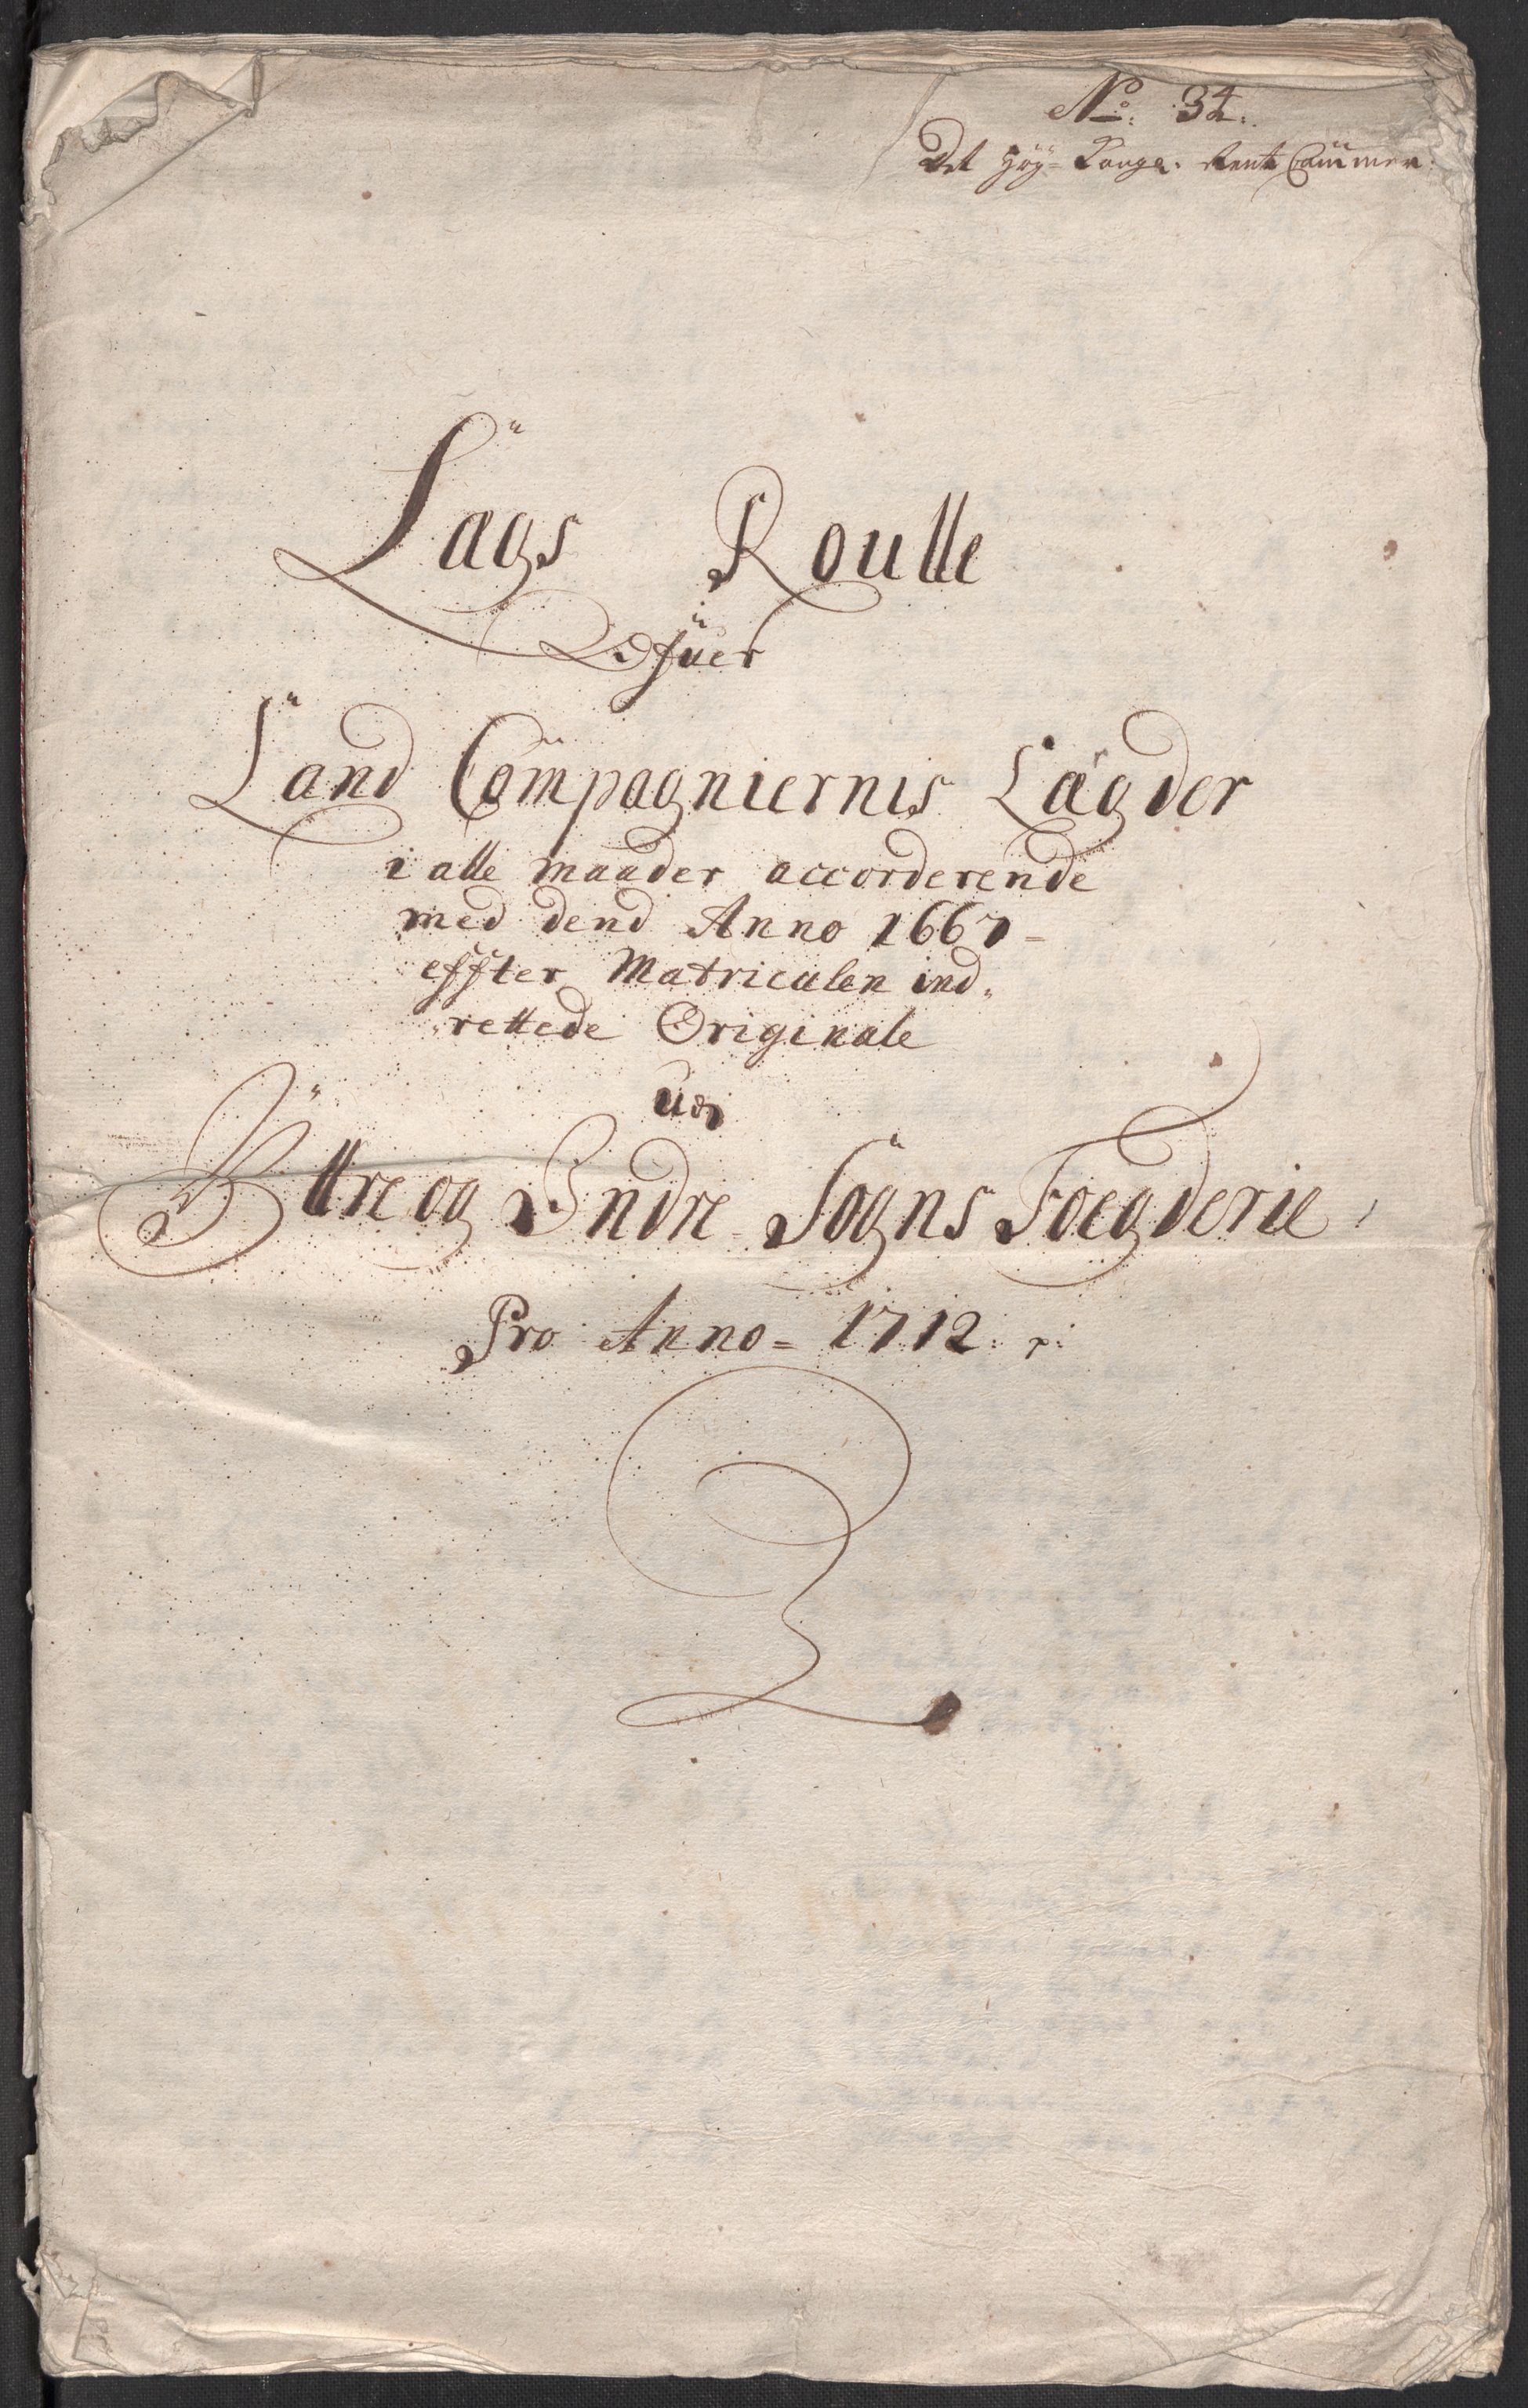 No: 34.
Det Høy- Konge. Rente Cammer.
Lægs Roulle
Ofuer
Land Compagniernis Lægder
i alle maader accorderende
med dend Anno 1667
effter Matriculen ind„
„rettede Originale
udj
Ÿttre og Indre Sogns Foegderie
Pro Anno = 1712: